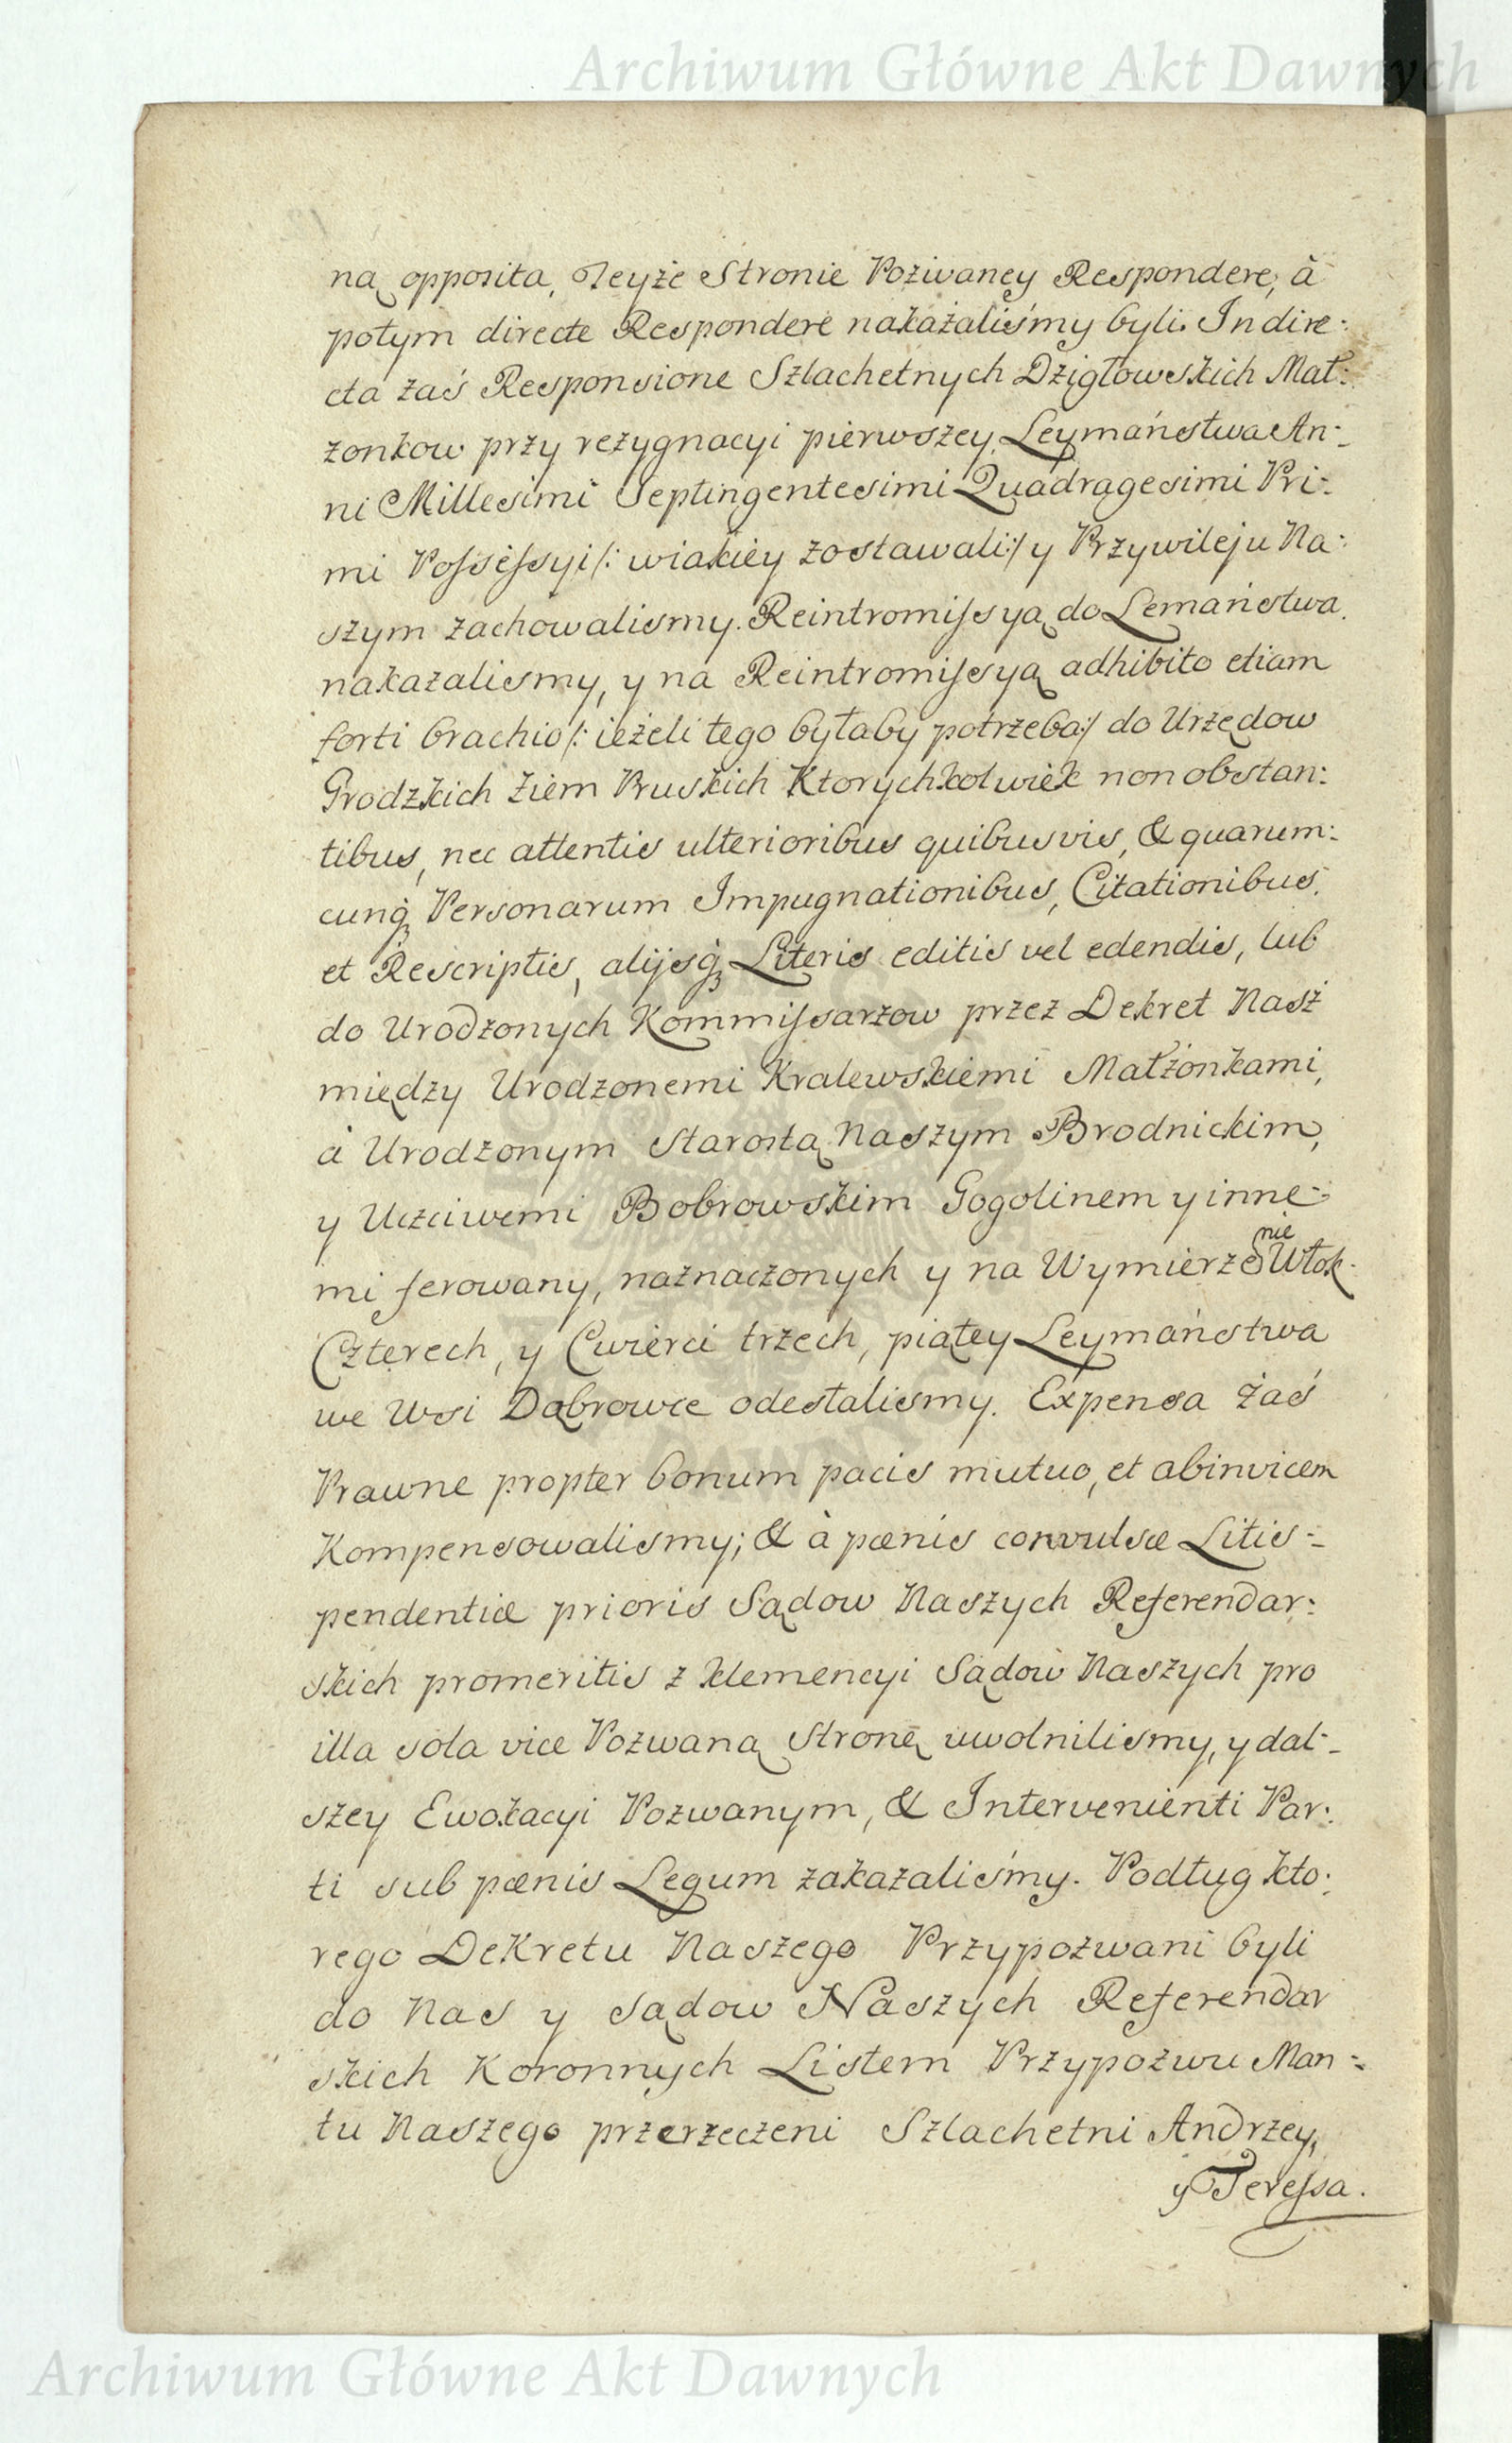 Archiwum Główne Akt Dawnych
na opposita, Teyże Stronie Pozwaney Respondere, à
potym directe Respondere nakażaliśmy byli. In dire-
cta zaś Responsione Szlachetnych Dzigłowskich Mał-
żonkow przy rezygnacyi pierwszey Leymaństwa An-
ni Millesimi Septingentesimi Quadragesimi Pri-
mi Possessyi /: w iakiey zostawali :/ y Przywileju Na-
szym zachowalismy. Reintromissyą do Lemaństwa
nakazalismy, y na Reintromissyą adhibito etiam
forti brachio /: ieżeli tego byłaby potrzeba :/ do Urzędow
Grodzkich Ziem Pruskich Ktorychkolwiek non obstan-
tibus, nec attentis ulterioribus quibusvis, & quarum-
cunq; Personarum Impugnationibus, Citationibus,
et Rescriptis, alijsq; Literis editis vel edendis, lub
do Urodzonych Kommissarzow przez Dekret Nasz
między Urodzonemi Kralewskiemi Małżonkami,
à Urodzonym Starostą Naszym Brodnickim,
y Uczciwemi Bobrowskim Gogolinem y inne-
mi ferowany, naznaczonych y na Wymierzenie Włok
Czterech, y Cwierci trzech, piątey Leymaństwa
we Wsi Dąbrowce odesłalismy. Expensa zaś
Prawne propter bonum pacis mutuo, et abinvicem
Kompensowalismy; & à pœnis convulsæ Litis-
pendentiæ prioris Sądow Naszych Referendar-
skich promeritis z klemencyi Sądow Naszych pro
illa sola vice Pozwaną Stronę uwolnilismy, y dal-
szey Ewokacyi Pozwanym, & Intervenienti Par-
ti sub pœnis Legum zakazaliśmy. Podług kto-
rego Dekretu Naszego Przypozwani byli
do Nas y Sądow Naszych Referendar
skich Koronnych Listem Przypozwu Man-
tu Naszego przerzeczeni Szlachetni Andrzey,
y Teressa.
Archiwum Główne Akt Dawnych